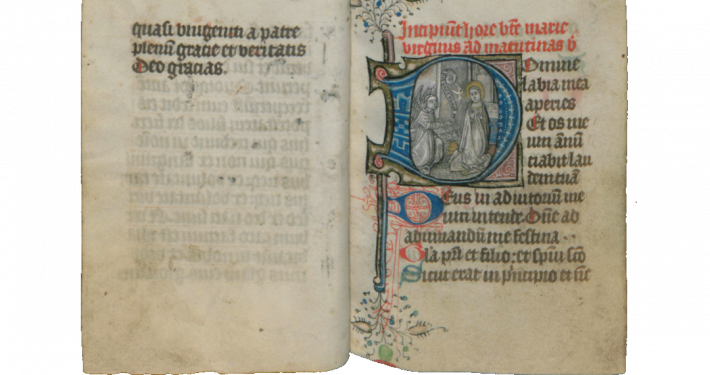 quasi unigeniti a patre
plenū gracie et veritatis
Deo gracias.
Incipiūt hore bte marie
virginis ad matutinas
Domine
labia mea
aperies
Et os me
um ānū
ciabit lau
dem tuā
Deus in adiutoriū me
um intende. Dñe ad
adiuuandū me festina
Gla pri et filio: et spūi sco
Sicut erat in principio et